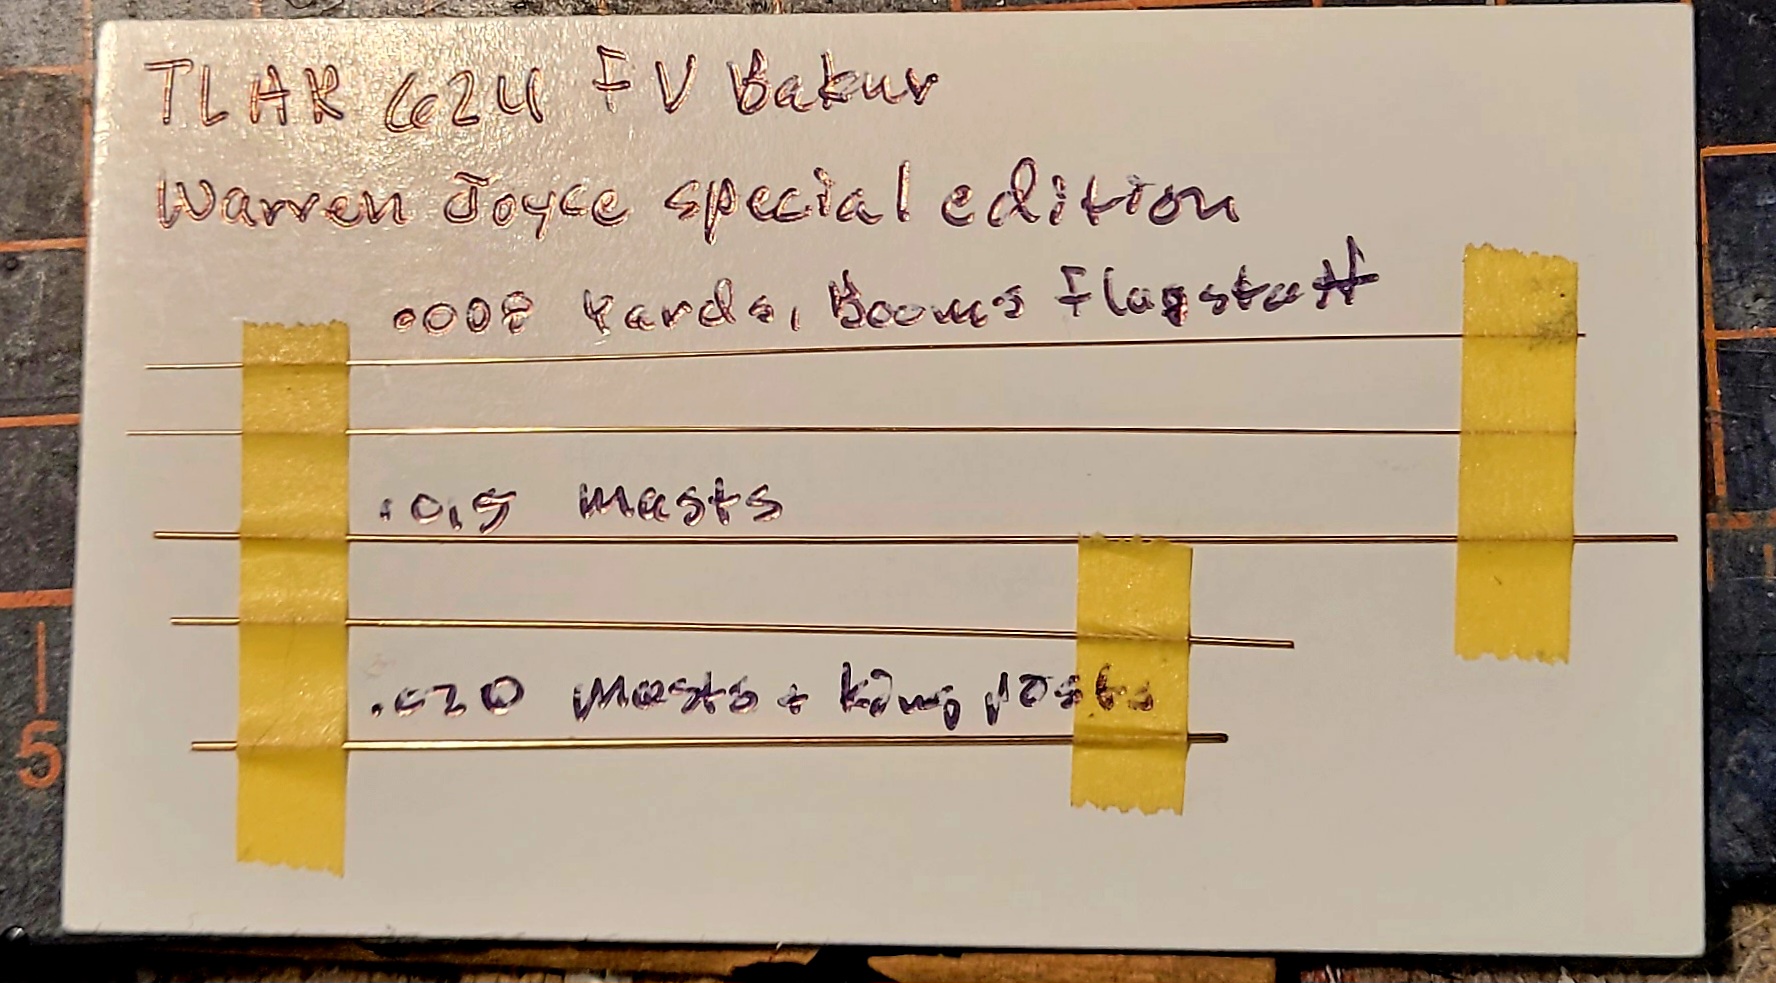 TLAR 624 FV Bakur
Warren Joyce special edition
.008 Yards, Booms Flagstaff
.015 Masts
.020 Masts + King posts
5